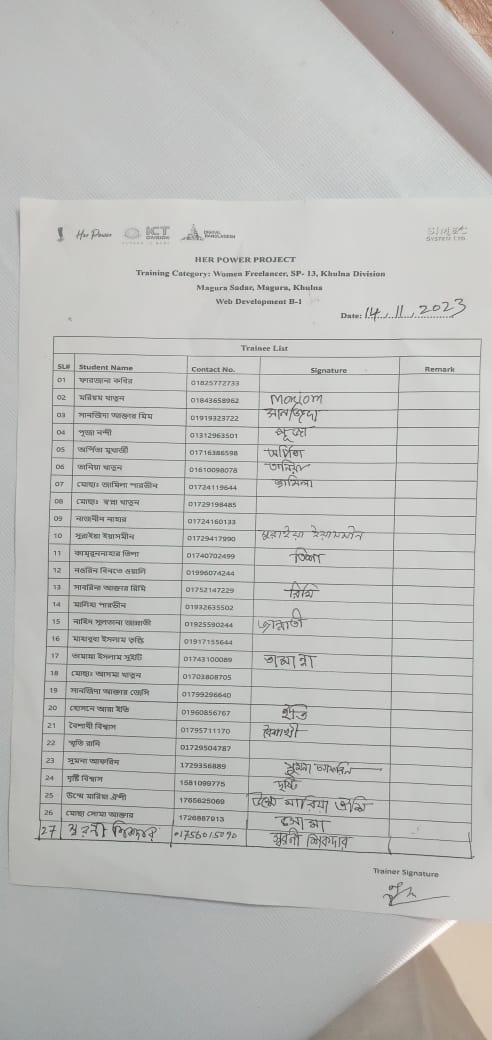 Her Power
ICT DIVISION
DIGITAL BANGLADESH
SYSTEM LTD
HER POWER PROJECT
Training Category: Women Freelancer, SP- 13, Khulna Division
Magura Sadar, Magura, Khulna
Web Development B-1
Date: 14.11.2023
Trainee List
SL# Student Name Contact No. Signature Remark
01 ফারজানা কবির 01825772733
02 মরিয়ম খাতুন 01843658962 Moriom
03 সানজিদা আক্তার মিম 01919323722 সানজিদা
04 পূজা নন্দী 01312963501 পূজা
05 অর্পিতা মুখার্জী 01716386598 অর্পিতা
06 তানিয়া খাতুন 01610098078 তানিয়া
07 মোছাঃ জামিলা পারভীন 01724119644 জামিলা
08 মোছাঃ স্বপ্না খাতুন 01729198485
09 নাজনীন নাহার 01724160133
10 সুরাইয়া ইয়াসমীন 01729417990 সুরাইয়া ইয়াসমীন
11 কামরুননাহার তিশা 01740702499 তিশা
12 নওরিন বিনতে ওয়ালি 01996074244
13 সাবরিনা আক্তার রিমি 01752147229 রিমি
14 মালিয়া পারভীন 01932635502
15 নাহিদ সুলতানা জান্নাতী 01925590244 জান্নাতী
16 মাহাবুবা ইসলাম তৃপ্তি 01917155644
17 তামান্না ইসলাম সুইটি 01743100089 তামান্না
18 মোছাঃ আসমা খাতুন 01703808705
19 সানজিদা আক্তার জেসি 01799296640
20 হোসনে আরা ইতি 01960856767 ইতি
21 বৈশাখী বিশ্বাস 01795711170 বৈশাখী
22 স্মৃতি রানি 01729504787
23 সুমনা আফরিন 1729356889 সুমনা আফরিন
24 দৃষ্টি বিশ্বাস 1581099775 দৃষ্টি
25 উম্মে মারিয়া ঐশী 1765625069 উম্মে মারিয়া ঐশি
26 মোছা সোমা আক্তার 1726887913 সোমা
27 সুরভী শিকদার 01756015090 সুরভী শিকদার
Trainer Signature